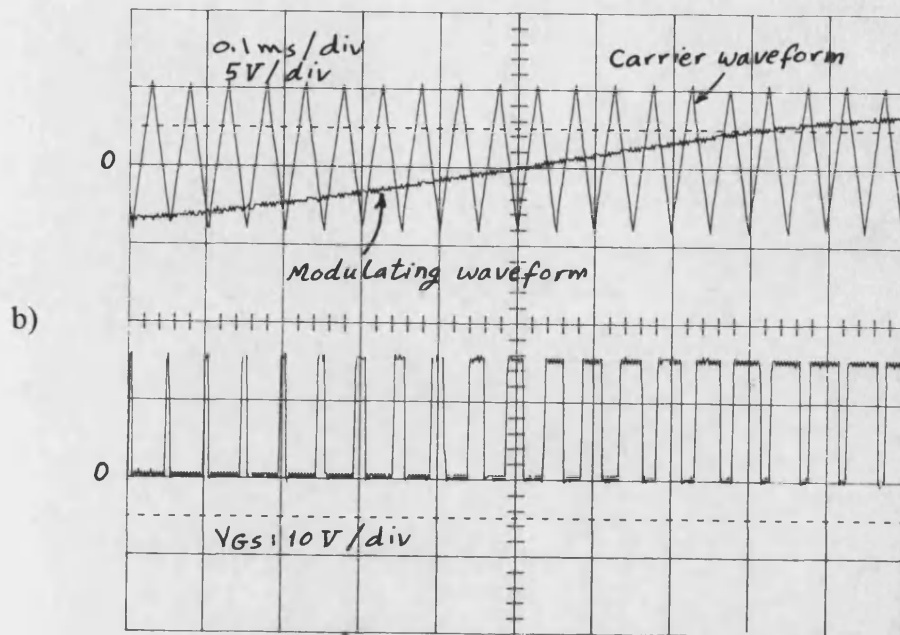 0.1ms/div
5V/div
Carrier waveform
0
Modulating waveform
b)
0
VGS: 10V/div